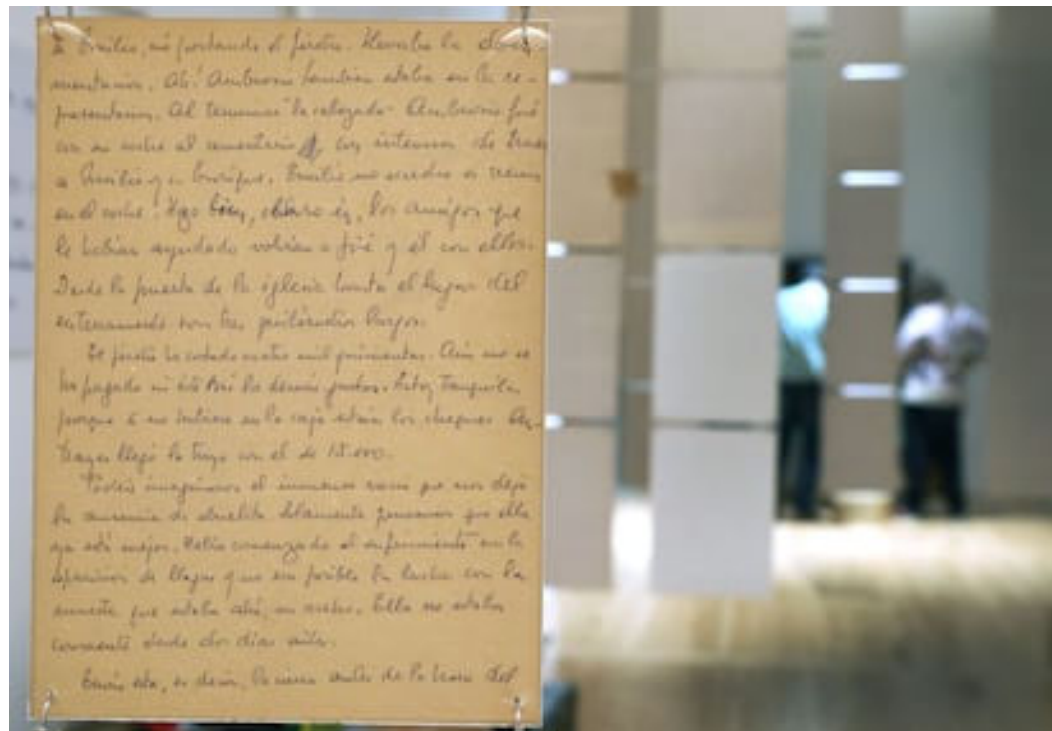 a Emilio, iré portando el féretro. Llevaba la
Ahí Ambrosio también estaba en la re-
Al terminar Ambrosio fué
en su coche al cementerio con intención de traer
a Emilio y a Enrique. Emilio no accedió a venir
en el coche. Hizo bien, claro es, los amigos que
le habían ayudado volvían a pié y él con ellos.
Desde la puerta de la iglesia hasta el lugar del
enterramiento son tres kilómetros largos.
El féretro ha costado cuatro mil quinientas. Aún no se
ha pagado ni éste ni los demás gastos. Estoy tranquila
porque a su tiempo en la caja están los cheques
llegó la tuya con el de 15.000.
Podéis imaginaros el inmenso vacío que nos dejó
la ausencia de abuelita. Solamente pensamos que ella
ya está mejor. Había comenzado el sufrimiento en la
aparición de llagas y no era posible la lucha con la
muerte que estaba ahí, su noche. Ella no estaba
consciente desde dos días antes.
es decir, la misa antes de la hora del